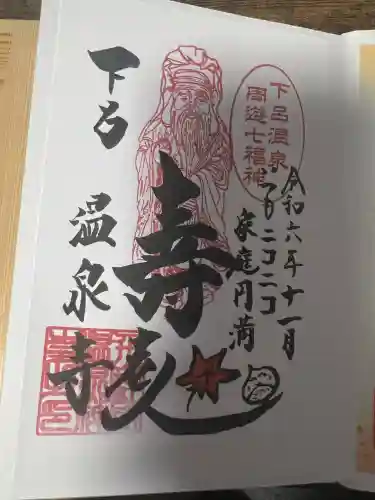 下呂温泉
周遊七福神
令和六年十一月
心もニコニコ
家庭円満
寿老人
下呂
温泉寺